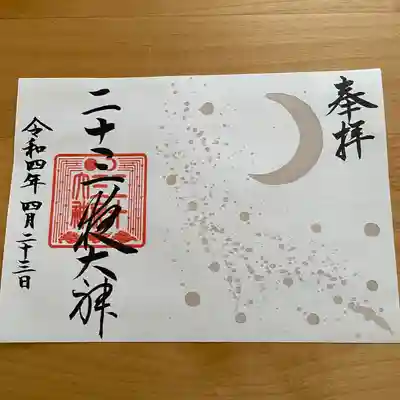 奉拝
二十三夜大神
令和四年 四月二十三日